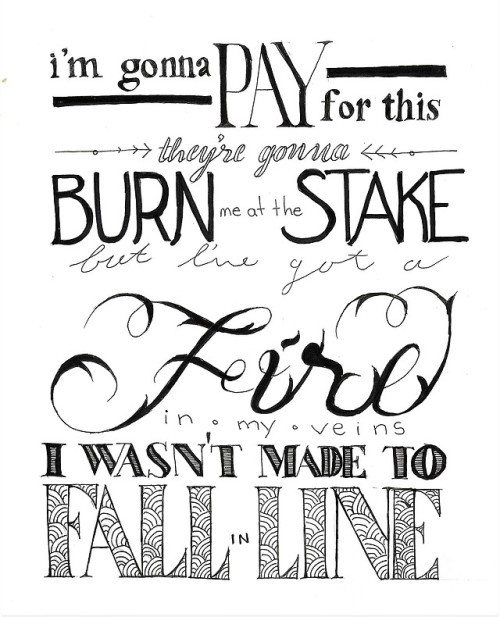 i'm gonna PAY for this
they're gonna
BURN me at the STAKE
but i've got a
Fire
in my veins
I WASN'T MADE TO
FALL IN LINE